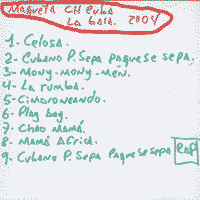 Maqueta CH Cuba
La Gata. 2004
1- Celosa.
2- Cubano P. Sepa paquese sepa.
3- Mony-mony-men.
4- La rumba.
5- Cimaroneando.
6- Play bag.
7- Chao Mamá.
8- Mamá Africa.
9- Cubano P. Sepa Paquesesepa rap